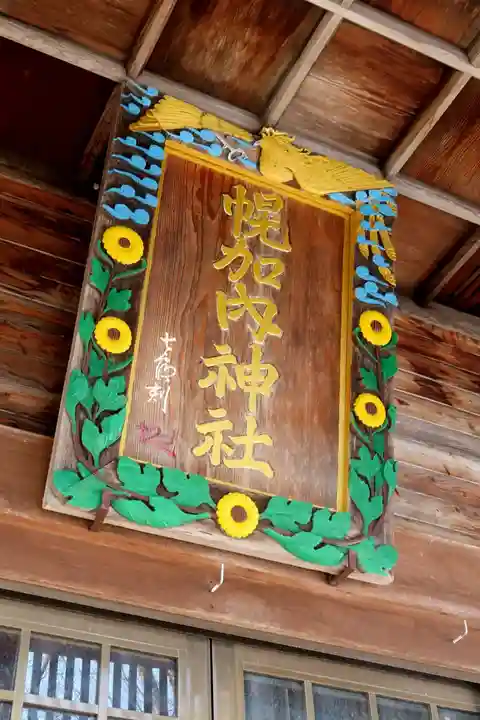 幌加内神社